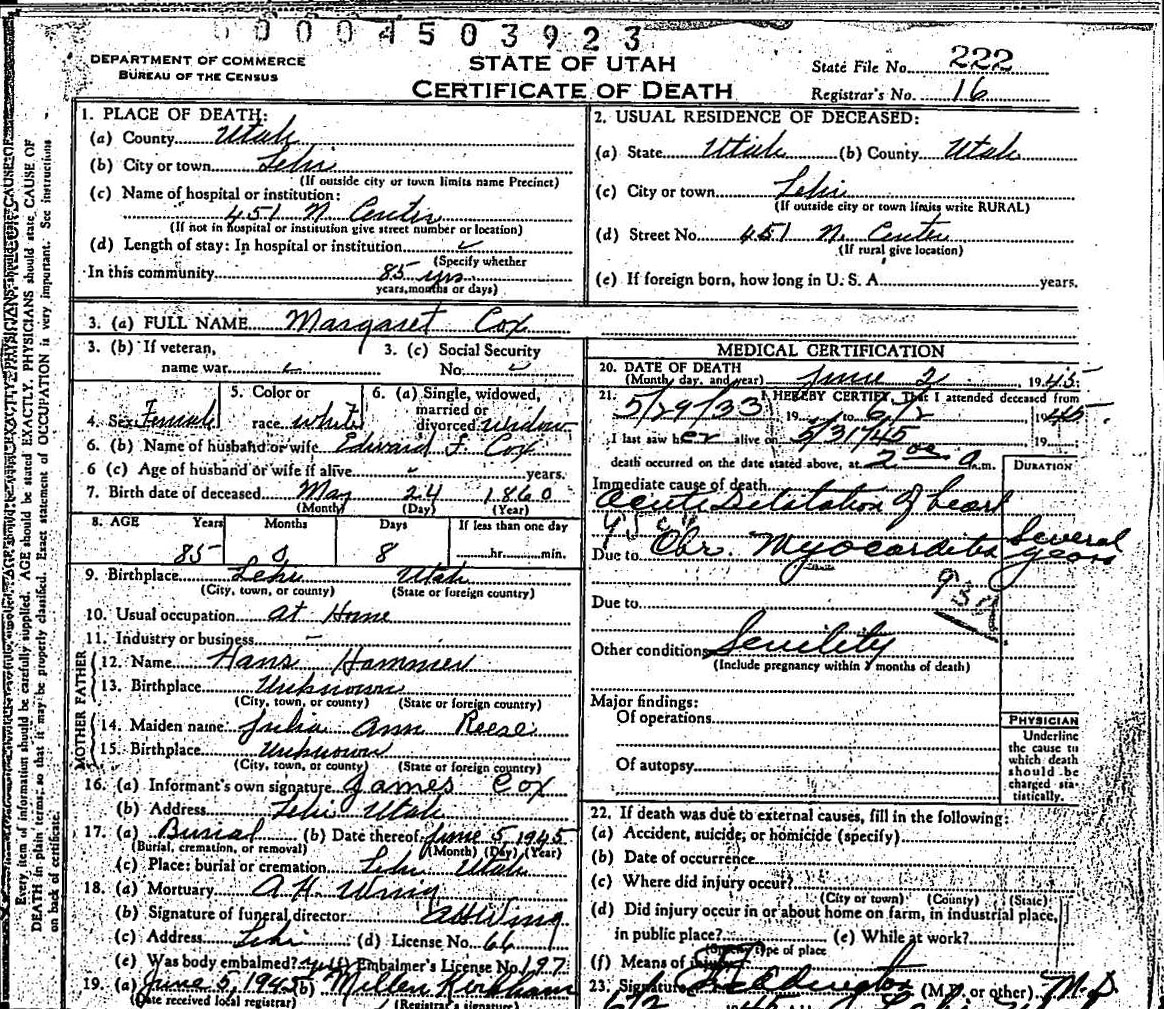 0004503923
DEPARTMENT OF COMMERCE
BUREAU OF THE CENSUS
STATE OF UTAH
CERTIFICATE OF DEATH
State File No. 222
Registrar's No. 16
1. PLACE OF DEATH:
(a) County Utah
(b) City or town Lehi
(If outside city or town limits name Precinct)
(c) Name of hospital or institution:
451 N. Center
(If not in hospital or institution give street number or location)
(d) Length of stay: In hospital or institution
(Specify whether
In this community 85 yrs.
years, months or days)
2. USUAL RESIDENCE OF DECEASED:
(a) State Utah (b) County Utah
(c) City or town Lehi
(If outside city or town limits write RURAL)
(d) Street No. 451 N. Center
(If rural give location)
(e) If foreign born, how long in U. S. A. years.
3. (a) FULL NAME Margaret Cox
3. (b) If veteran, 3. (c) Social Security
name war No.
5. Color or 6. (a) Single, widowed,
married or
4. Sex Female race white divorced widow
6. (b) Name of husband or wife Edward J. Cox
6 (c) Age of husband or wife if alive years.
7. Birth date of deceased May 24 1860
(Month) (Day) (Year)
8. AGE Years Months Days If less than one day
85 0 8 hr. min.
9. Birthplace Lehi Utah
(City, town, or county) (State or foreign country)
10. Usual occupation at Home
11. Industry or business –
FATHER
12. Name Hans Hammer
13. Birthplace Unknown
(City, town, or county) (State or foreign country)
MOTHER
14. Maiden name Julia Ann Reese
15. Birthplace Unknown
(City, town, or county) (State or foreign country)
16. (a) Informant's own signature James Cox
(b) Address Lehi Utah
17. (a) Burial (b) Date thereof June 5, 1945
(Burial, cremation, or removal) (Month) (Day) (Year)
(c) Place: burial or cremation Lehi Utah
18. (a) Mortuary A. H. Wing
(b) Signature of funeral director AH Wing
(c) Address Lehi (d) License No. 66
(e) Was body embalmed? yes (f) Embalmer's License No. 197
19. (a) June 5, 1945 (b) Millen Kirkham
(Date received local registrar) (Registrar's signature)
MEDICAL CERTIFICATION
20. DATE OF DEATH
(Month, day, and year) June 2 1945
21. I HEREBY CERTIFY, That I attended deceased from
5/29/33 19 to 6/2 1945
I last saw her alive on 5/31/45 19
death occurred on the date stated above, at 2 00 a.m.
DURATION
Immediate cause of death
Acute Dilitation of heart
Due to Chr. Myocarditis Several years
93
Due to
Other conditions Senility
(Include pregnancy within 3 months of death)
Major findings:
Of operations
Of autopsy
PHYSICIAN
Underline
the cause to
which death
should be
charged sta-
tistically.
22. If death was due to external causes, fill in the following:
(a) Accident, suicide, or homicide (specify)
(b) Date of occurrence
(c) Where did injury occur?
(City or town) (County) (State)
(d) Did injury occur in or about home on farm, in industrial place,
in public place? (e) While at work?
(Specify type of place
(f) Means of injury
23. Signature Eddington (M.D. or other) M.D.
6/2 1945
Every item of information should be carefully supplied. AGE should be stated EXACTLY. PHYSICIANS should state CAUSE OF
DEATH in plain terms, so that it may be properly classified. Exact statement of OCCUPATION is very important. See instructions
on back of certificate.